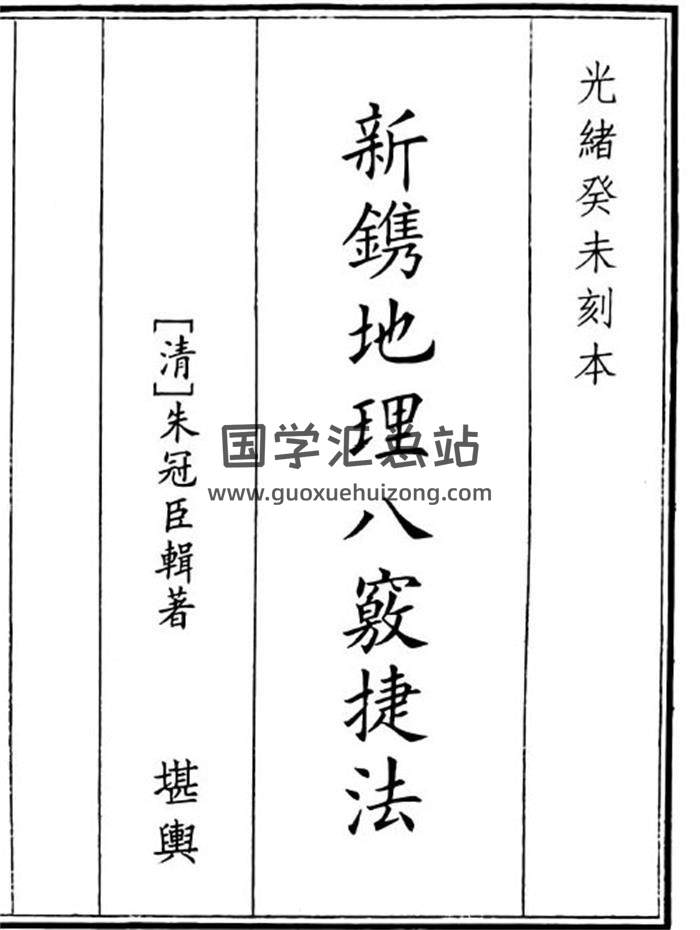 光緒癸未刻本
新鐫地理八竅捷法
[清]朱冠臣輯著 堪輿
国学汇总站
www.guoxuehuizong.com